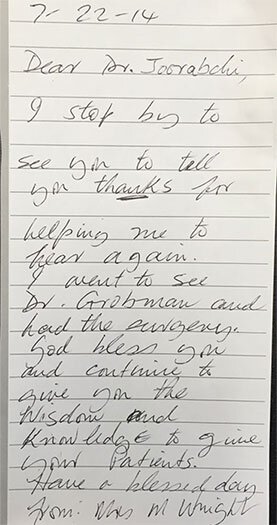 7-22-14
Dear Dr. Joorabchi,
I stop by to
see you to tell
you thanks for
helping me to
hear again.
I went to see
Dr. Grobman and
had the surgery.
God bless you
and continue to
give you the
Wisdom and
Knowledge to give
your Patients.
Have a blessed day
from: Mrs M Wright